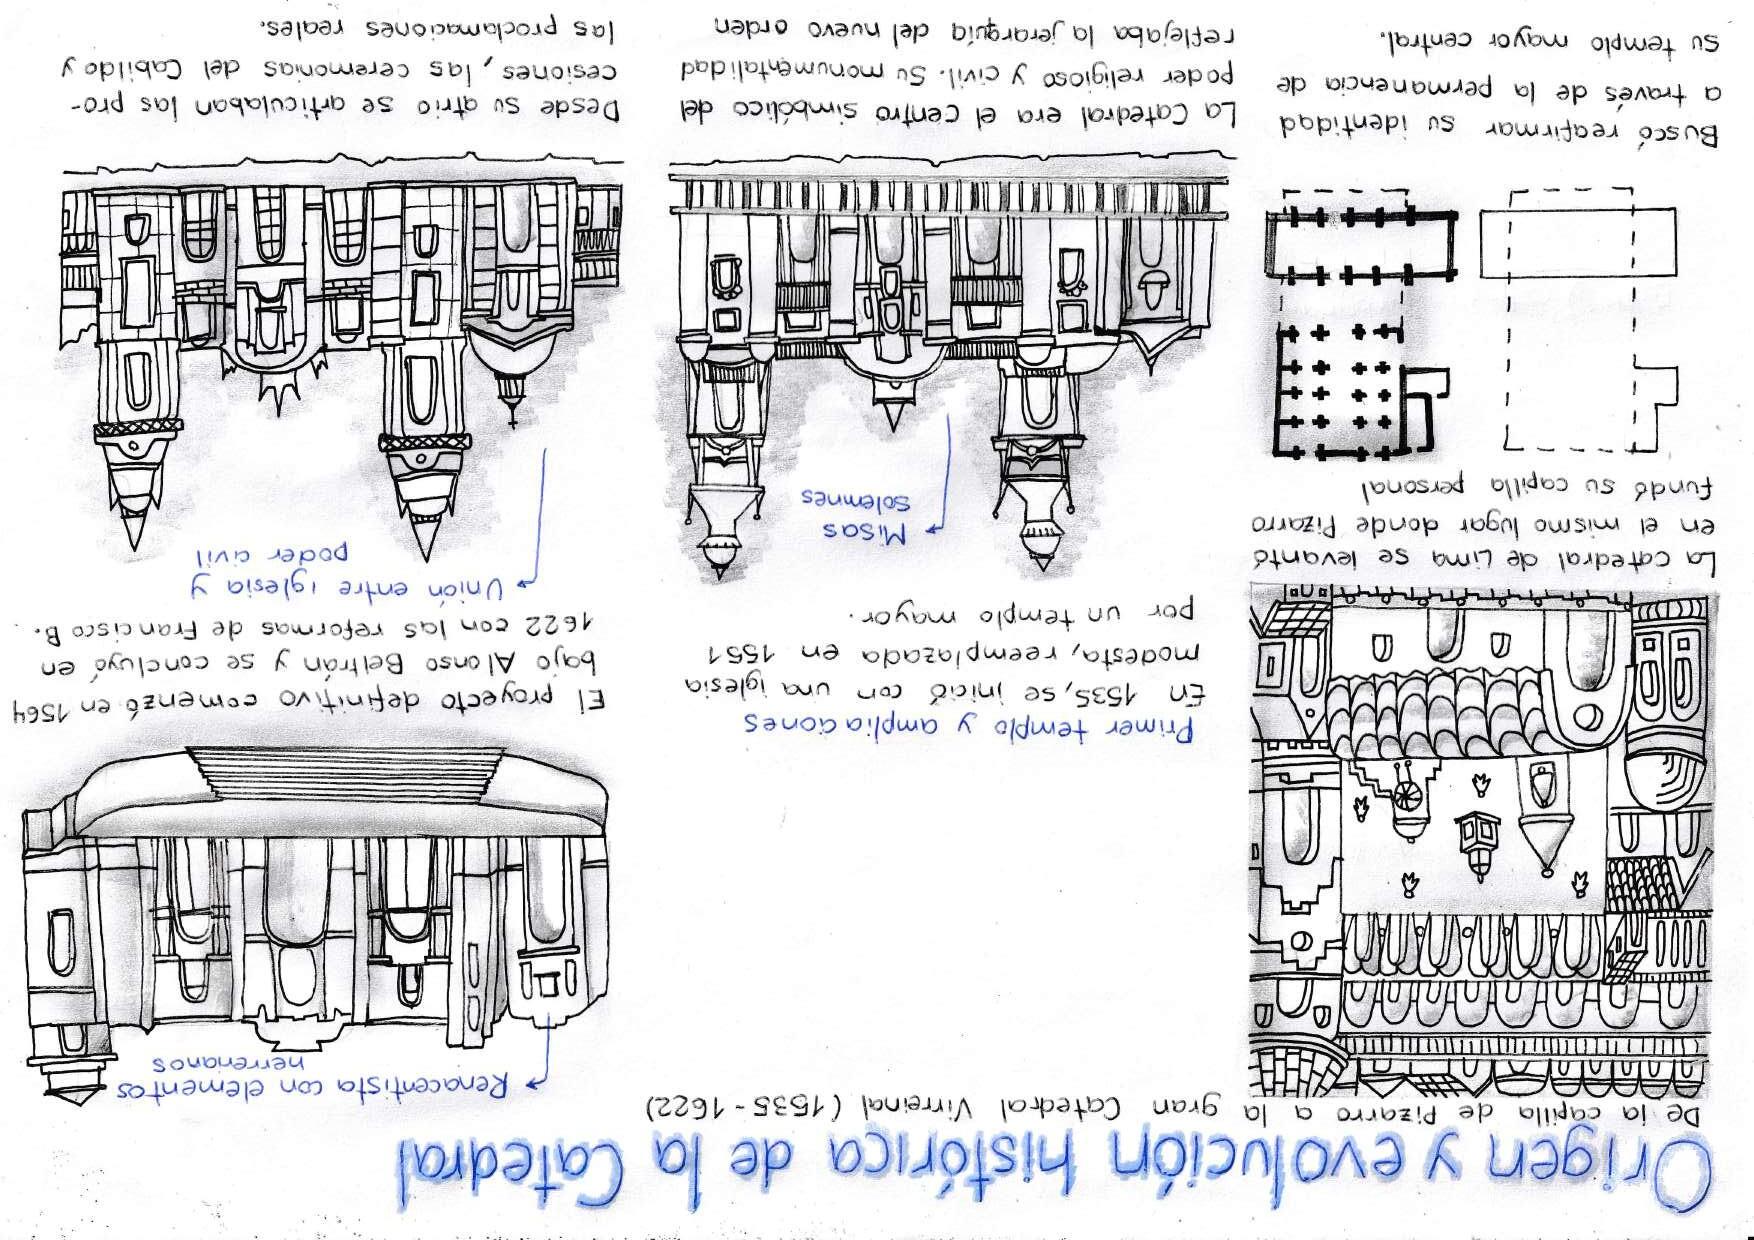 Origen y evolución histórica de la Catedral
De la capilla de Pizarro a la gran Catedral Virreinal (1535-1622)
La Catedral de Lima se levantó
en el mismo lugar donde Pizarro
fundó su capilla personal
Buscó reafirmar su identidad
a través de la permanencia de
su templo mayor central.
Primer templo y ampliaciones
En 1535, se inició con una iglesia
modesta, reemplazada en 1551
por un templo mayor.
Misas
solemnes
La Catedral era el centro simbólico del
poder religioso y civil. Su monumentalidad
reflejaba la jerarquía del nuevo orden
Renacentista con elementos
herrerianos
El proyecto definitivo comenzó en 1564
bajo Alonso Beltrán y se concluyó en
1622 con las reformas de Francisco B.
Unión entre iglesia y
poder civil
Desde su atrio se articulaban las pro-
cesiones, las ceremonias del Cabildo y
las proclamaciones reales.